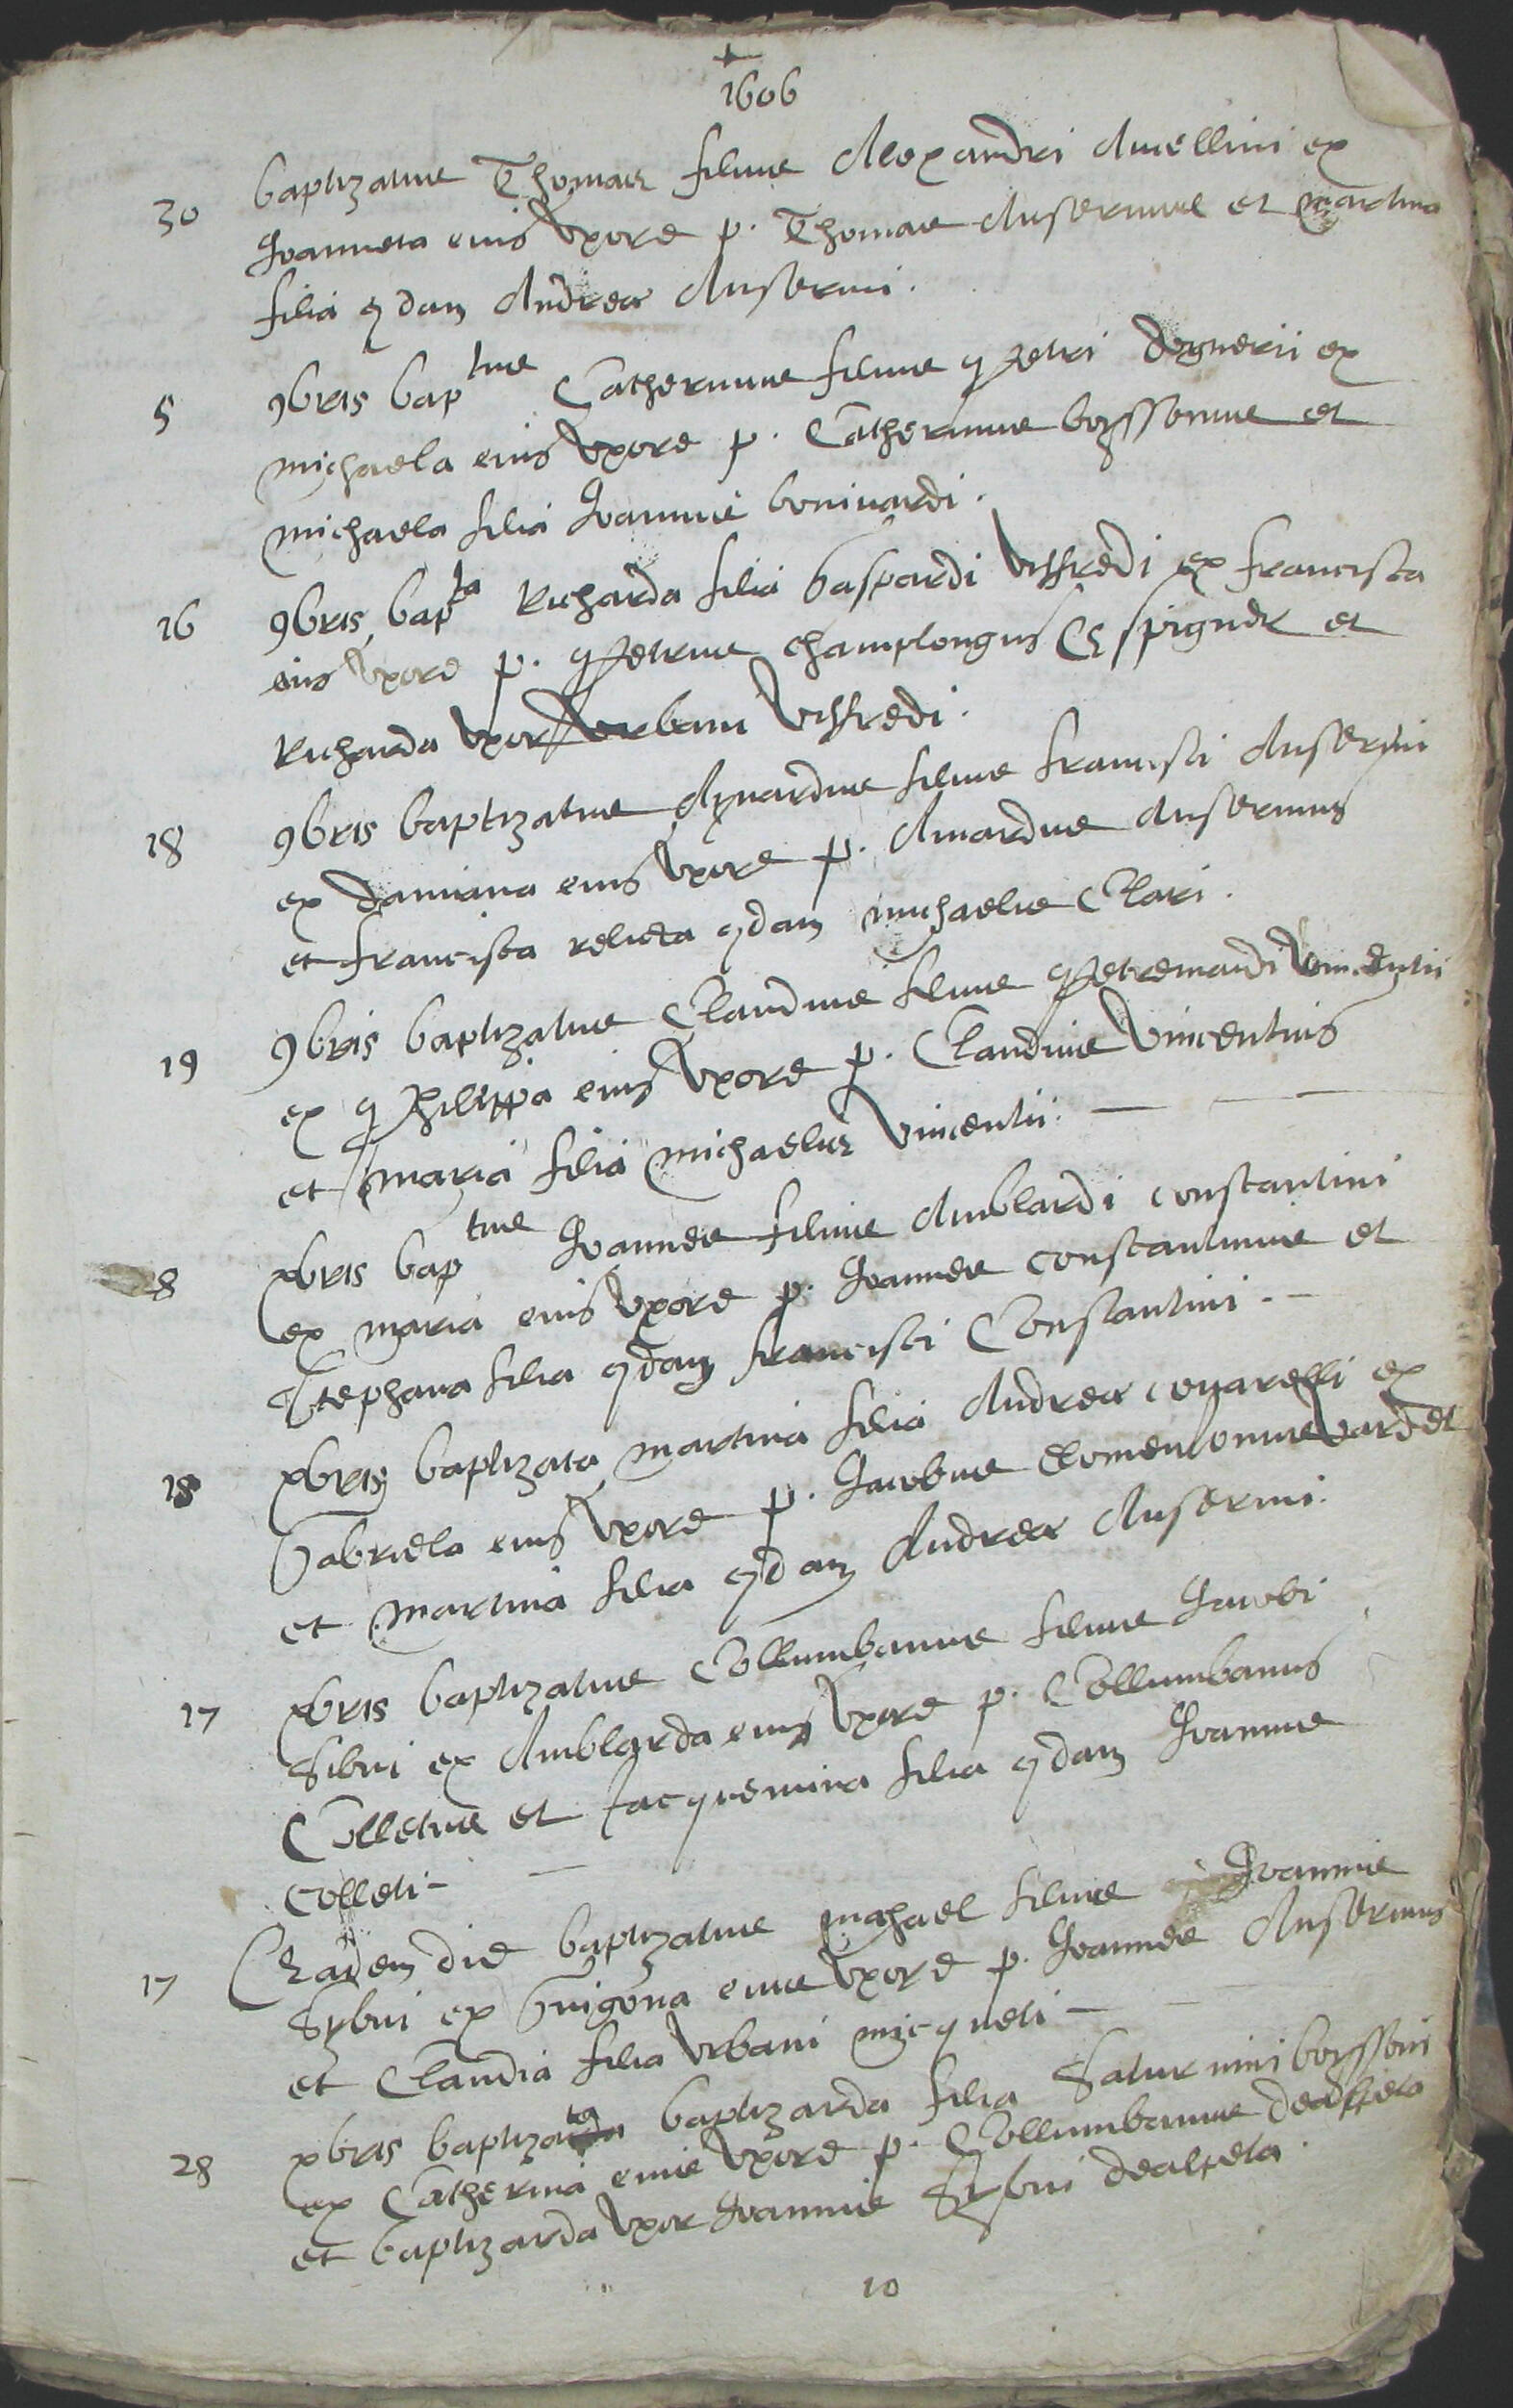 1606
30 baptizatus Thomas filius Alexandri Avellini ex
Joanneta eius uxore p. Thomas Ansermus et martina
filia qdam Andreæ Ansermi.
5 9bris baptus Catherinus filius petri degnerii ex
michaela eius uxore p. Catherinus boyssonus et
michaela filia Joannis bonivardi.
16 9bris bapta Richarda filia Gaspardi Uffredi ex francisca
eius uxore p. petrus champlongus Espigner et
Richarda uxor Urbani Uffredi.
18 9bris baptizatus Aynardus filius francisci Ansermi
ex damiana eius uxore p. Ainardus Ansermus
et francisca relicta qdam michaelis Clari.
19 9bris baptizatus Claudius filius petremandi Vincentii
ex philippa eius uxore p. Claudius Vincentius
et maria filia michaelis Vincentii.
8 xbris baptus Joannes filius Amblardi constantini
ex maria eius uxore p. Joannes constantinus et
Stephana filia qdam francisci Constantini.
18 xbris baptizata martina filia Andreæ ex
Gabriela eius uxore p. Jacobus vardet
et martina filia qdam Andreæ Ansermi.
17 xbris baptizatus Collumbanus filius Jacobi
Sibui ex Amblarda eius uxore p. Collumbanus
Colletus et Jacquemina filia qdam Joannis
Colleti
17 Eadem die baptizatus michael filius Joannis
Sybui ex Guigona eius uxore p. Joannes Ansermus
et Claudia filia Urbani micqueti
28 xbris baptizata baptizarda filia Saturnini boyssoni
ex Catherina eius uxore p. Collumbanus
et baptizarda uxor Joannis Sybui dealpeta.
10